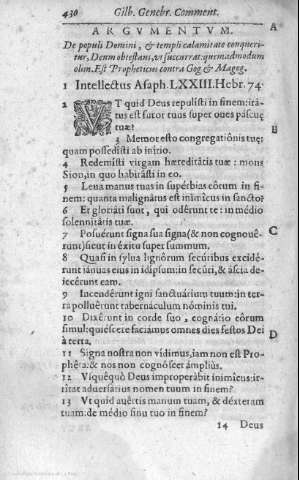 430 Gilb. Genebr. Comment.
A
ARGVMENTVM.
De populi Domini, & templi calamitate conqueri-
tur, Deum obtestans, vt succurrat: quemadmodum
olim. Est Propheticus contra Gog & Magog.
1 Intellectus Asaph. LXXIII. Hebr. 74.
2 VT quid Deus repulisti in finem: irá-
tus est furor tuus super oues páscuę
tuæ?
B
3 Memor esto congregatiónis tuę:
quam possedísti ab initio.
4 Redemísti virgam hæreditátis tuæ: mons
Sion, in quo habitásti in eo.
5 Leua manus tuas in supérbias eórum in fi-
nem: quanta malignátus est inimícus in sancto?
6 Et gloriáti sunt, qui odérunt te: in médio
solennitátis tuæ.
C
7 Posuérunt signa sua signa (& non cognouê-
runt) sicut in éxitu super summum.
8 Quasi in sylua lignórum secúribus excidé-
runt iánuas eius in idípsum: in secúri, & áscia de-
iecérunt eam.
9 Incendérunt igni sanctuárium tuum: in ter-
ra polluêrunt tabernáculum nóminis tui.
10 Dixêrunt in corde suo, cognátio eôrum
simul: quiéscere faciámus omnes dies festos Dei
à terra.
D
11 Signa nostra non vídimus, iam non est Pro-
phêta: & nos non cognóscet ámplius.
12 Vsquéquò Deus improperàbit inimícus: ir-
ritat aduersárius nomen tuum in finem?
13 Vt quid auêrtis manum tuam, & déxteram
tuam: de médio sinu tuo in finem?
14 Deus